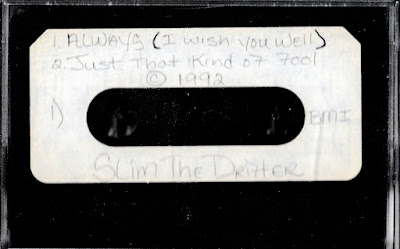 1. ALWAYS (I wish you well)
2. Just That Kind of Fool
© 1992
1)
BMI
SLim The Drifter